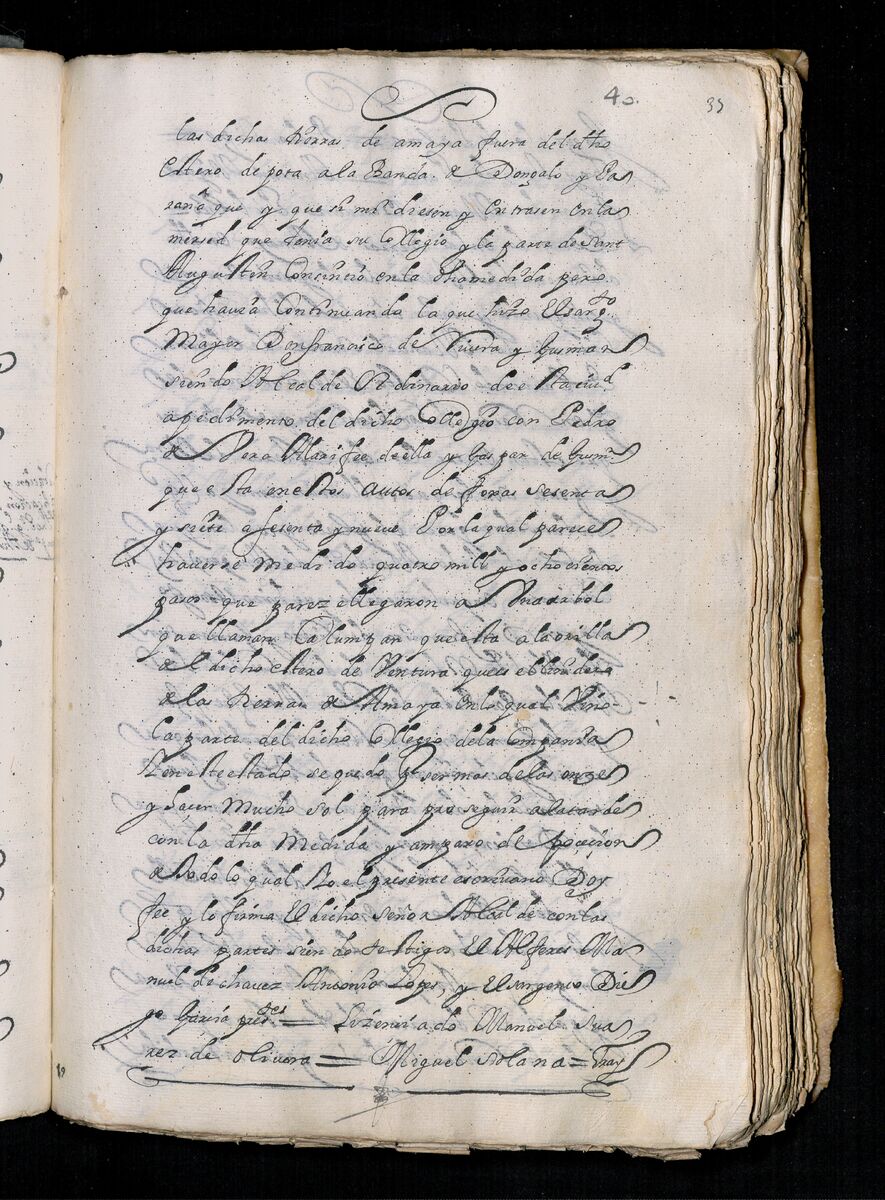 40. 35
las dichas tierras de amaya fuera del dho
estero de pota a la Banda de Donçalo y Pa
ranã que y que si mi diesen y entrasen en la
mersed que tenia su Collegio y la parte de Sant
Augustin Concintio en la dha medida pero
que haura continuando la que hizo El sargto
Mayor Don francisco de Viuera y Gusman
siendo Alcalde Ordinario de esta ciud
a pedimento del dicho Collegio con Pedro
de Vera Alarife de ella y Gaspar de Gusmn
que esta en estos autos de foxas sesenta
y siete a sesenta y nueue Por la qual parece
hauerse medido quatro mill y ochocientos
pasos que pareze llegaron a Vn arbol
que llaman Calumpan que esta a la orilla
del dicho estero de Ventura que es el lindero
de las tierras de Amaya en lo qual Vino
la parte del dicho Collegio de la Compania
Y en este estado se quedo pr ser mas de las onze
y haçer mucho sol para proseguir a la tarde
con la dha Medida y amparo de poçeçion
de todo lo qual Yo el presente escriuano Doy
fee y lo firma El dicho señor Alcalde con las
dichas partes siendo testigos El Alferes Ma
nuel de chauez Antonio Lopes, y El sargento Die
go Garcia pressdes = Lizenciado Manuel Sua
rez de oliuera = Miguel Solana = Fray